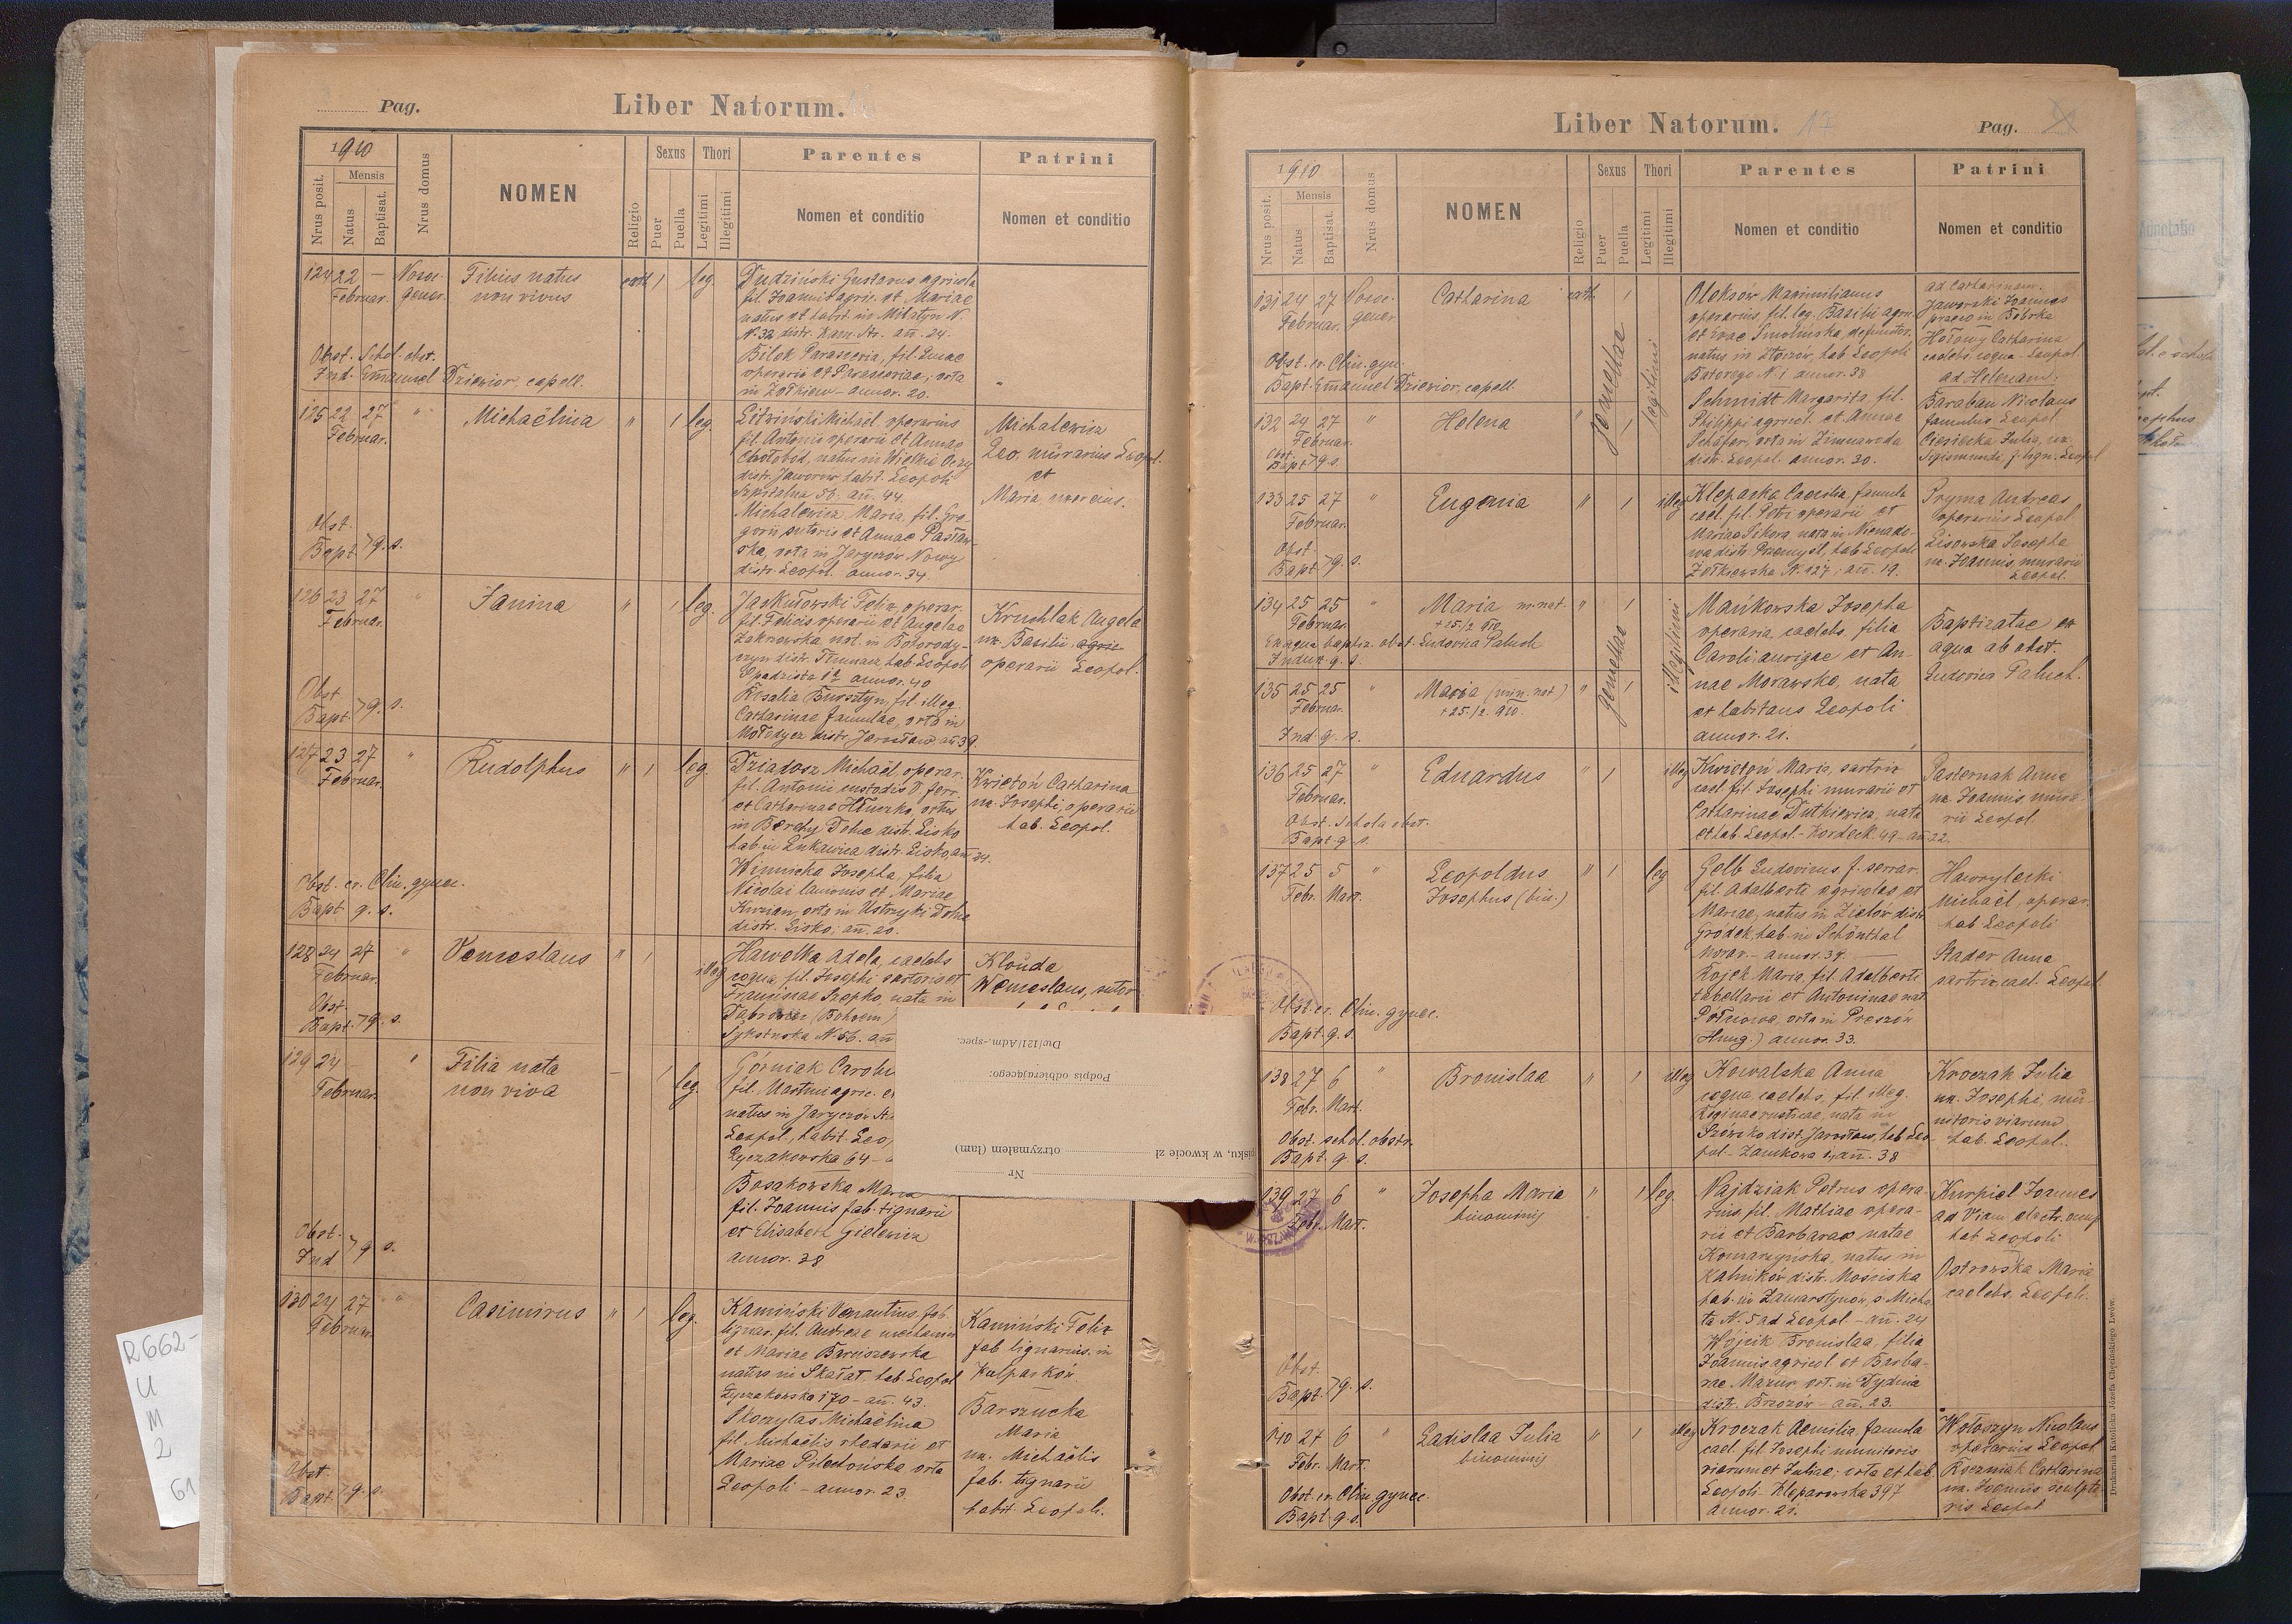 Pag.
Liber Natorum. 16
1910
Nrus posit.
Mensis
Natus
Baptisat.
Nrus domus
NOMEN
Religio
Sexus
Puer
Puella
Thori
Legitimi
Illegitimi
Parentes
Nomen et conditio
Patrini
Nomen et conditio
124 22 — Nosoc.
Februar. gener.
Filius natus
non vivus
cath. 1 leg.
Dudziński Gustavus agricola
fil. Joannis agric. et Mariae
natus et habit. in Milatyn N.
N. 32 distr. Kam. Str. añ. 24.
Bilek Parascevia, fil. Lucae
operarii et Parasceviae, orta
in Żółkiew – annor. 20.
Obst. Schol. obst.
Ind. Emanuel Dziewior, capell.
125 22 27 "
Februar.
Michaëlina
" 1 leg.
Litwiński Michaël operarius
fil. Antonii operarii et Annae
natus in Wielkie Oczy
distr. Jaworow habit. Leopoli
Szpitalna 56. añ. 44.
Michalewicz Maria, fil. Gre-
gorii sutoris et Annae Pasław-
ska, orta in Jaryczów Nowy
distr. Leopol. annor. 34.
Michalewicz
Leo, murarius Leopol.
et
Maria uxor eius.
Obst.
Bapt. > q. s.
126 23 27 "
Februar.
Janina
" 1 leg.
Jaskułowski Felix, operar.
fil. Felicis operarii et Angelae
Zakrzewska nat. in Bohorody-
czyn distr. Tłumacz hab. Leopoli
annor. 40
Rosalia Bursztyn, fil. illeg.
Catharinae famulae, orta in
Mołodycz distr. Jarosław añ 39.
Kruchlak Angela
ux. Basilii agric
operarii Leopol.
Obst.
Bapt. > q. s.
127 23 27 "
Februar.
Rudolphus
" 1 leg.
Dziadosz Michaël, operar.
fil. Antonii custodis V. ferr.
et Catharinae Hłuszko, ortus
in Berehy Dolne distr. Lisko
hab. in Łukawica distr. Lisko, añ 34.
Winnicka Josepha, filia
Nicolai lanionis et Mariae
orta in Ustrzyki Dolne
distr. Lisko; añ. 20.
Kwietoń Catharina
ux. Josephi, operarii
hab. Leopol.
Obst. ex. Clin. gynec.
Bapt. q. s.
128 24 27 "
Februar.
Venceslaus
" 1 illeg
Hawelka Adela, caelebs
coqua, fil. Josephi sartoris et
Franciscae Szepko, nata in
(Bohoem)
Sykstuska N. 56. añ
Klouda
Wenceslaus, sutor
Obst.
Bapt. > q. s.
129 24 — "
Februar.
Filia nata
non viva
— 1 leg.
Górniak Carolu
fil. Martini agric. et
natus in Jaryczów St.
Leopol., habit. Leo
Łyczakowska 64 –
Bosakowska Maria
fil. Joannis fab. tignarii
et Elisabeth Gielewicz
annor. 38
Obst.
Ind > q. s.
130 24 27 "
Februar.
Casimirus
" 1 leg.
Kamiński Venantius, fab.
lignar. fil. Andreae mechanici
et Mariae Baruszewska
natus in Skałat, hab. Leopol
Łyczakowska 170 – añ. 43.
Skoczylas Michaëlina
fil. Michaëlis rhedarii et
Mariae Pilechowska orta
Leopoli – annor. 23.
Kamiński Felix
fab lignarius in
Kulparków.
Barszucka
Maria
ux. Michaëlis
fab. tignarii
habit. Leopoli.
Obst.
Bapt. > q. s.
Dw/121/Adm.-spec.
Podpis odbierającego:
pisku, w kwocie zł otrzymałem (łam)
Nr
R 662-
U
M
2
61
Liber Natorum. 17
Pag.
1910
Nrus posit.
Mensis
Natus
Baptisat.
Nrus domus.
NOMEN
Religio
Sexus
Puer
Puella
Thori
Legitimi
Illegitimi
Parentes
Nomen et conditio
Patrini
Nomen et conditio
131 24 27 Nosoc.
Februar. gener
Catharina
cath. 1
gemellae
legitimi
Oleksów Maximilianus
operarius, fil. leg. Basilii agric.
et Evae Smolińska, defunctor.
natus in Złoczów, hab. Leopoli
Batorego N. 1 annor. 38
Schmidt Margarita, fil.
Philippi agricol. et Annae
Schäfer, orta in Zimnawoda
distr. Leopol. annor. 30.
ad Catharinam.
Jaworski Joannes
in Bóbrka
Hołowy Catharina
caelebs coqua – Leopol.
ad Helenam:
Baraban Nicolaus
famulus Leopol.
Ciesielska Julia, ux.
Sigismundi, f. lign. Leopol
Obst. ex. Clin. gyn.
Bapt. Emanuel Dziewior, capell.
132 24 27 "
Februar.
Helena
" 1
Obst.
Bapt > q s.
133 25 27 "
Februar.
Eugenia
" 1 illeg
Kleparka Caecilia, famula
cael. fil. Petri operarii et
Mariae Sikora nata in Nienado-
wa distr. Przemyśl, hab. Leopoli
Żółkiewska N. 127; añ. 19.
Pryma Andreas
operarius Leopol
Lisowska Josepha
ux. Joannis, murarii
Leopol.
Obst.
Bapt. > q. s.
134 25 25 "
Februar.
Maria m. nat.
+ 25/2 910
" 1
gemellae
illegitimi
Ex aqua baptiz. obst. Ludovica Paluch
Indux q. s.
Mańkowska Josepha
operaria, caelebs, filia
Caroli, aurigae et An-
nae Morawska, nata
et habitans Leopoli
annor. 21.
Baptizatae ex
aqua ab obst.
Ludovica Paluch.
135 25 25 "
Februar.
Maria (min. nat)
+ 25./2. 910.
" 1
Ind. q. s.
136 25 27 "
Februar.
Eduardus
" 1 illeg
Kwietoń Maria, sartrix
cael. fil. Josephi murarii et
Catharinae Dutkiewicz, nata
et hab. Leopol. – Kordeck. 49 – añ 22.
Pasternak Anna
ux. Joannis mura-
rii Leopol
Obst. Schola obst.
Bapt. q. s.
137 25 5 "
Febr. Mart.
Leopoldus
Josephus (bin.)
" 1 leg
Gelb Ludovicus f. serrar.
fil. Adalberti agricolae et
Mariae, natus in Zielów distr.
Gródek, hab. in Schönthal
Morav. – annor. 39. —
Rojek Maria, fil. Adalberti
tabellarii et Antoninae nat.
orta in Preszów
(Hung.) annor. 33.
Hawrylecki
Michaël, operar.
hab Leopoli
Stader Anna
sartrix cael. Leopol
Obst. ex. Clin. gynec.
Bapt. q. s.
138 27 6 "
Febr. Mart.
Bronislaa
" 1 illeg
Kowalska Anna
coqua, caelebs, fil. illeg.
Reginae rusticae, nata in
Szówsko dist. Jarosław, hab Leo-
pol – Zamkowa 4, añ. 38
Kroczak Julia
ux. Josephi, mu-
nitoris viarum
hab. Leopol.
Obst. schol. obstr.
Bapt. q. s.
139 27 6 "
Febr. Mart.
Josepha Maria
binominij
" 1 leg.
Vajdziak Petrus opera-
rius, fil. Mathiae opera-
rii et Barbarae natae
Komarzyńska, natus in
Kalników distr. Mościska
hab. in Zamarstynów, s. Micha-
ła N. 5 ad Leopol – añ. 24
Wójcik Bronislaa, filia
Joannis agricol. et Barba-
rae Mazur ort. in Dydnia
distr. Brzozów – añ. 23.
Kurpiel Joannes
ad Viam electr. occup
hab Leopoli
Ostrowska Maria
caelebs, Leopoli.
Obst.
Bapt. > q. s.
140 27 6 "
Febr. Mart.
Ladislaa Julia
binominij
" 1 illeg
Kroczak Aemilia, famula
cael. fil. Josephi munitoris
viarum et Juliae; orta et hab.
Leopoli. Kleparowska 397
Annor. 21.
Wołoszyn Nicolaus
operarius Leopol
Roczniak Catharina
ux. Joannis sculpto-
ris Leopol
Obst. ex. Clin. gynec.
Bapt. q. s.
Drukarnia Katolicka Józefa Chęcińskiego Lwów.